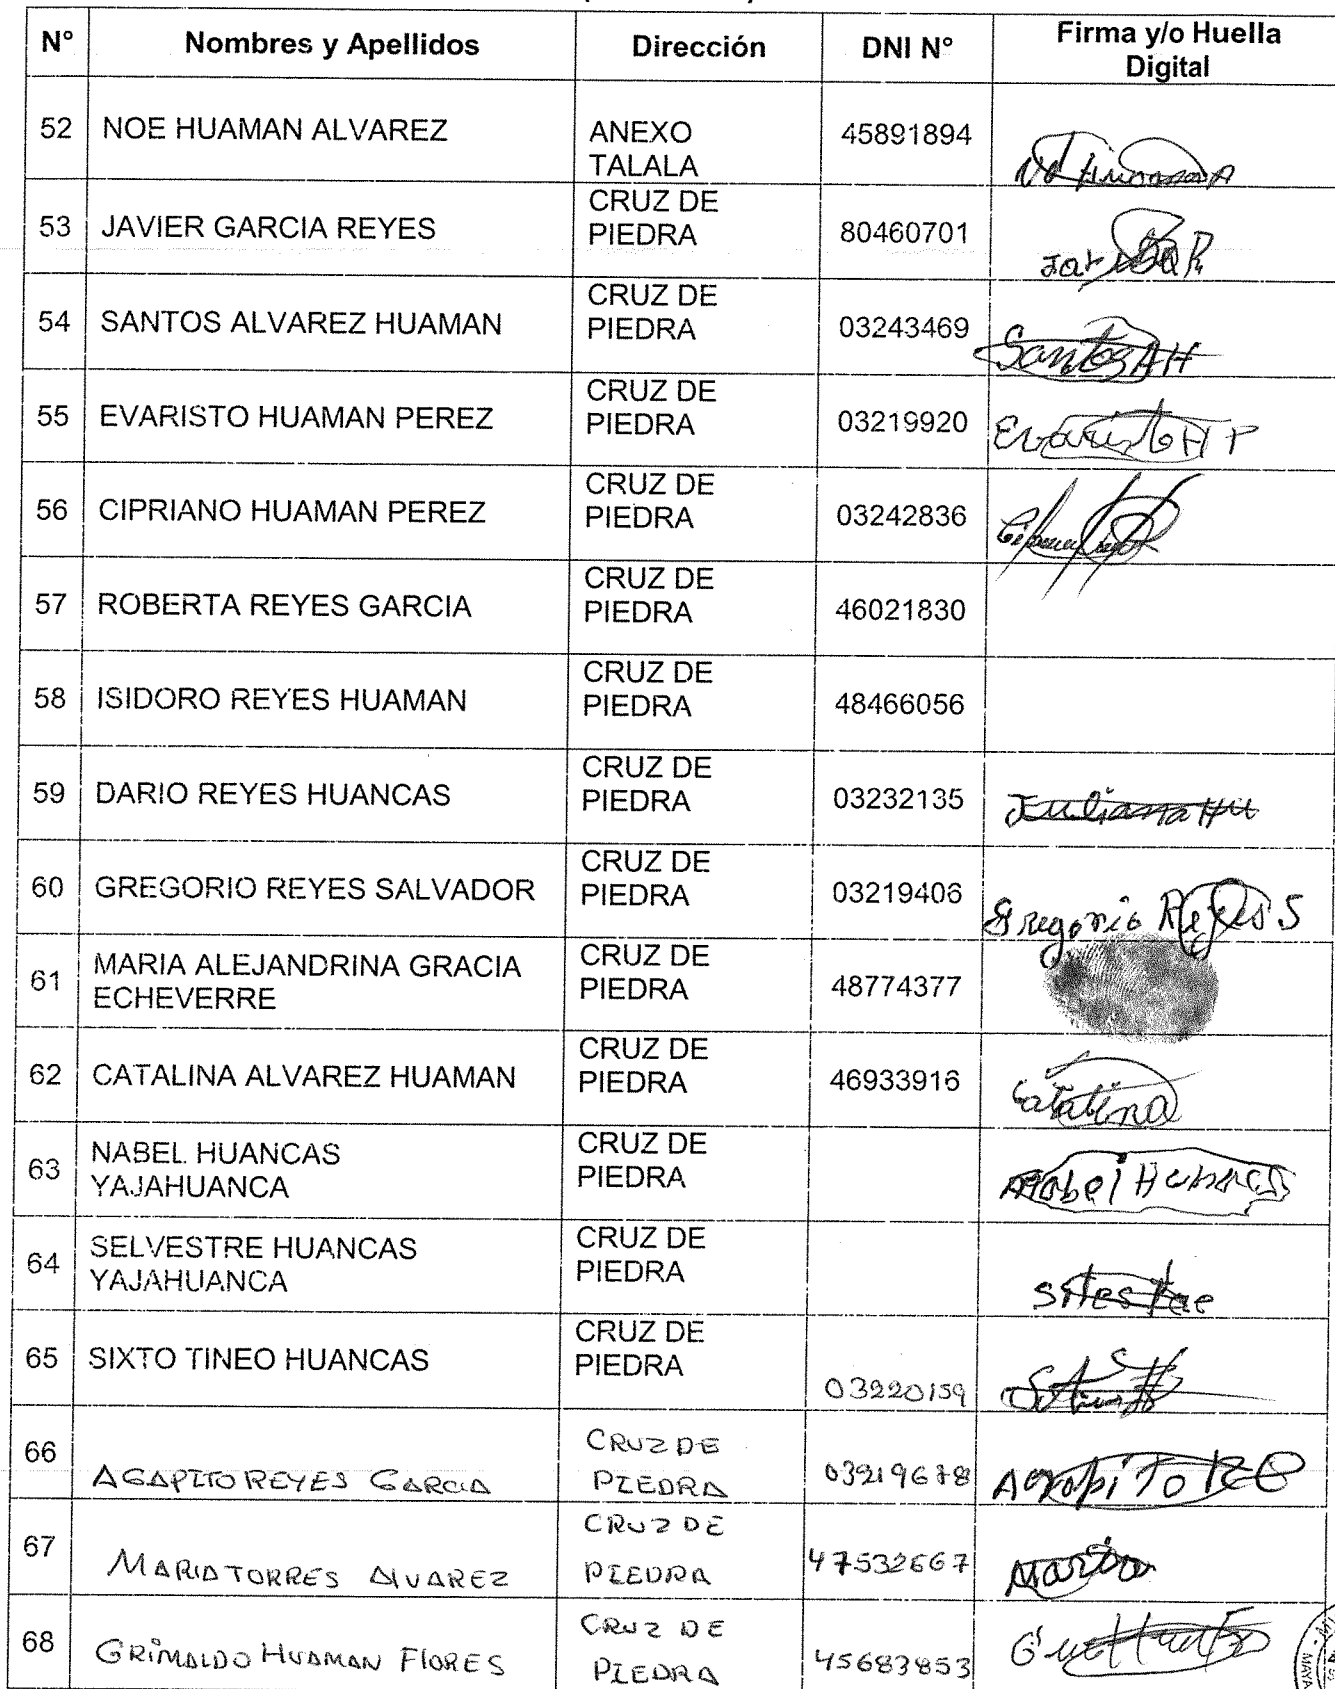 N° Nombres y Apellidos Dirección DNI N° Firma y/o Huella
Digital
52 NOE HUAMAN ALVAREZ ANEXO 45891894
TALALA
53 JAVIER GARCIA REYES CRUZ DE
PIEDRA 80460701
54 SANTOS ALVAREZ HUAMAN CRUZ DE
PIEDRA 03243469 Santos A H
55 EVARISTO HUAMAN PEREZ CRUZ DE
PIEDRA 03219920 Evaristo H P
56 CIPRIANO HUAMAN PEREZ CRUZ DE
PIEDRA 03242836
57 ROBERTA REYES GARCIA CRUZ DE
PIEDRA 46021830
58 ISIDORO REYES HUAMAN CRUZ DE
PIEDRA 48466056
59 DARIO REYES HUANCAS CRUZ DE
PIEDRA 03232135 Juliana Hu
60 GREGORIO REYES SALVADOR CRUZ DE
PIEDRA 03219406 Gregorio Reyes S
61 MARIA ALEJANDRINA GRACIA CRUZ DE
ECHEVERRE PIEDRA 48774377
62 CATALINA ALVAREZ HUAMAN CRUZ DE
PIEDRA 46933916 Catalina
63 NABEL HUANCAS CRUZ DE
YAJAHUANCA PIEDRA
64 SELVESTRE HUANCAS CRUZ DE
YAJAHUANCA PIEDRA
65 SIXTO TINEO HUANCAS CRUZ DE
PIEDRA 03220159
66 AGAPITO REYES GARCIA CRUZ DE
PIEDRA 03219678 Agapito R G
67 MARIA TORRES ALVAREZ CRUZ DE
PIEDRA 47532667 Maria
68 GRIMALDO HUAMAN FLORES CRUZ DE
PIEDRA 45683853